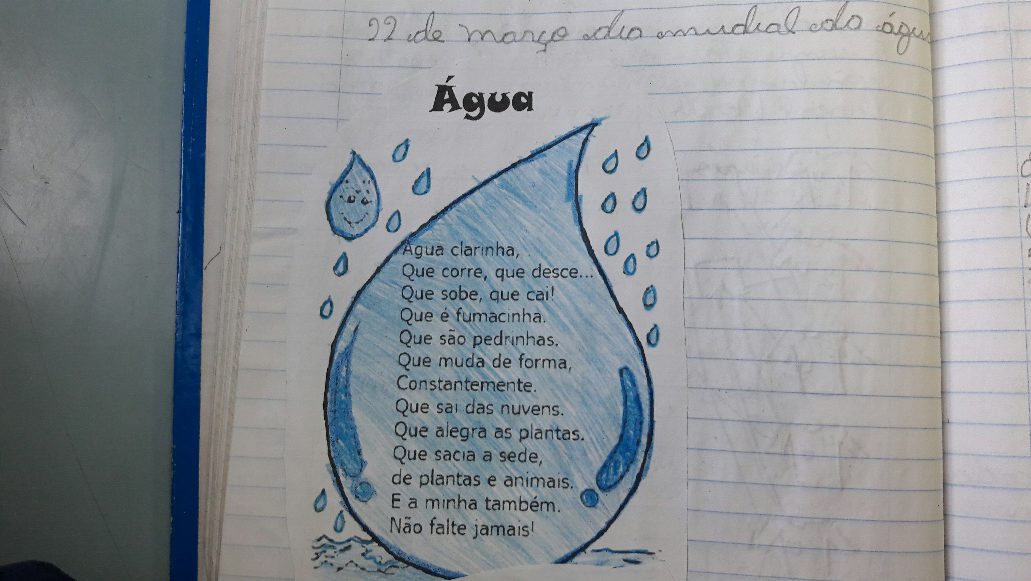 22 de março dia mudial da água
Água
Água clarinha,
Que corre, que desce...
Que sobe, que cai!
Que é fumacinha.
Que são pedrinhas.
Que muda de forma,
Constantemente.
Que sai das nuvens.
Que alegra as plantas.
Que sacia a sede,
de plantas e animais.
E a minha também.
Não falte jamais!